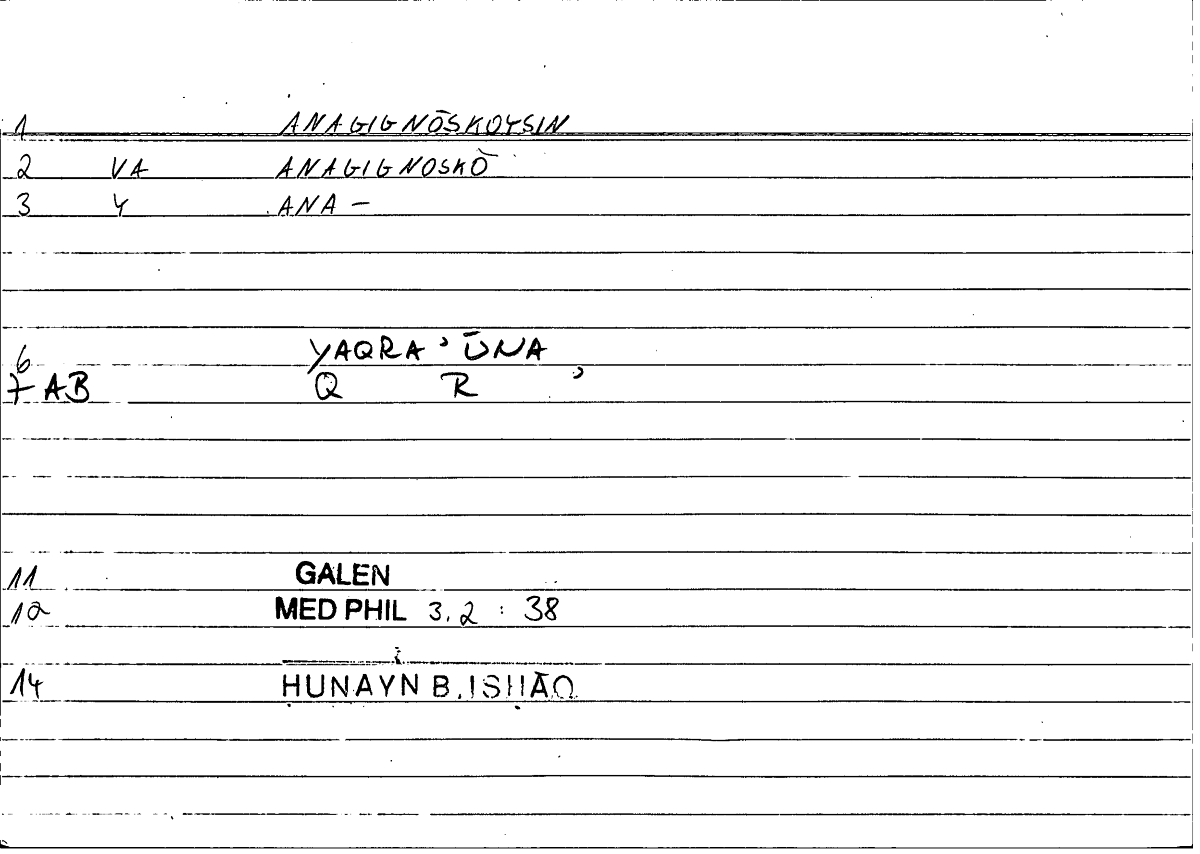 1 ANAGIGNŌSKOYSIN
2 VA ANAGIGNOSKŌ
3 Y ANA –
6 YAQRA ʾ ŪNA
7 AB Q R ʾ
11 GALEN
12 MED PHIL 3.2 : 38
14 ḤUNAYN B. ISḤĀQ